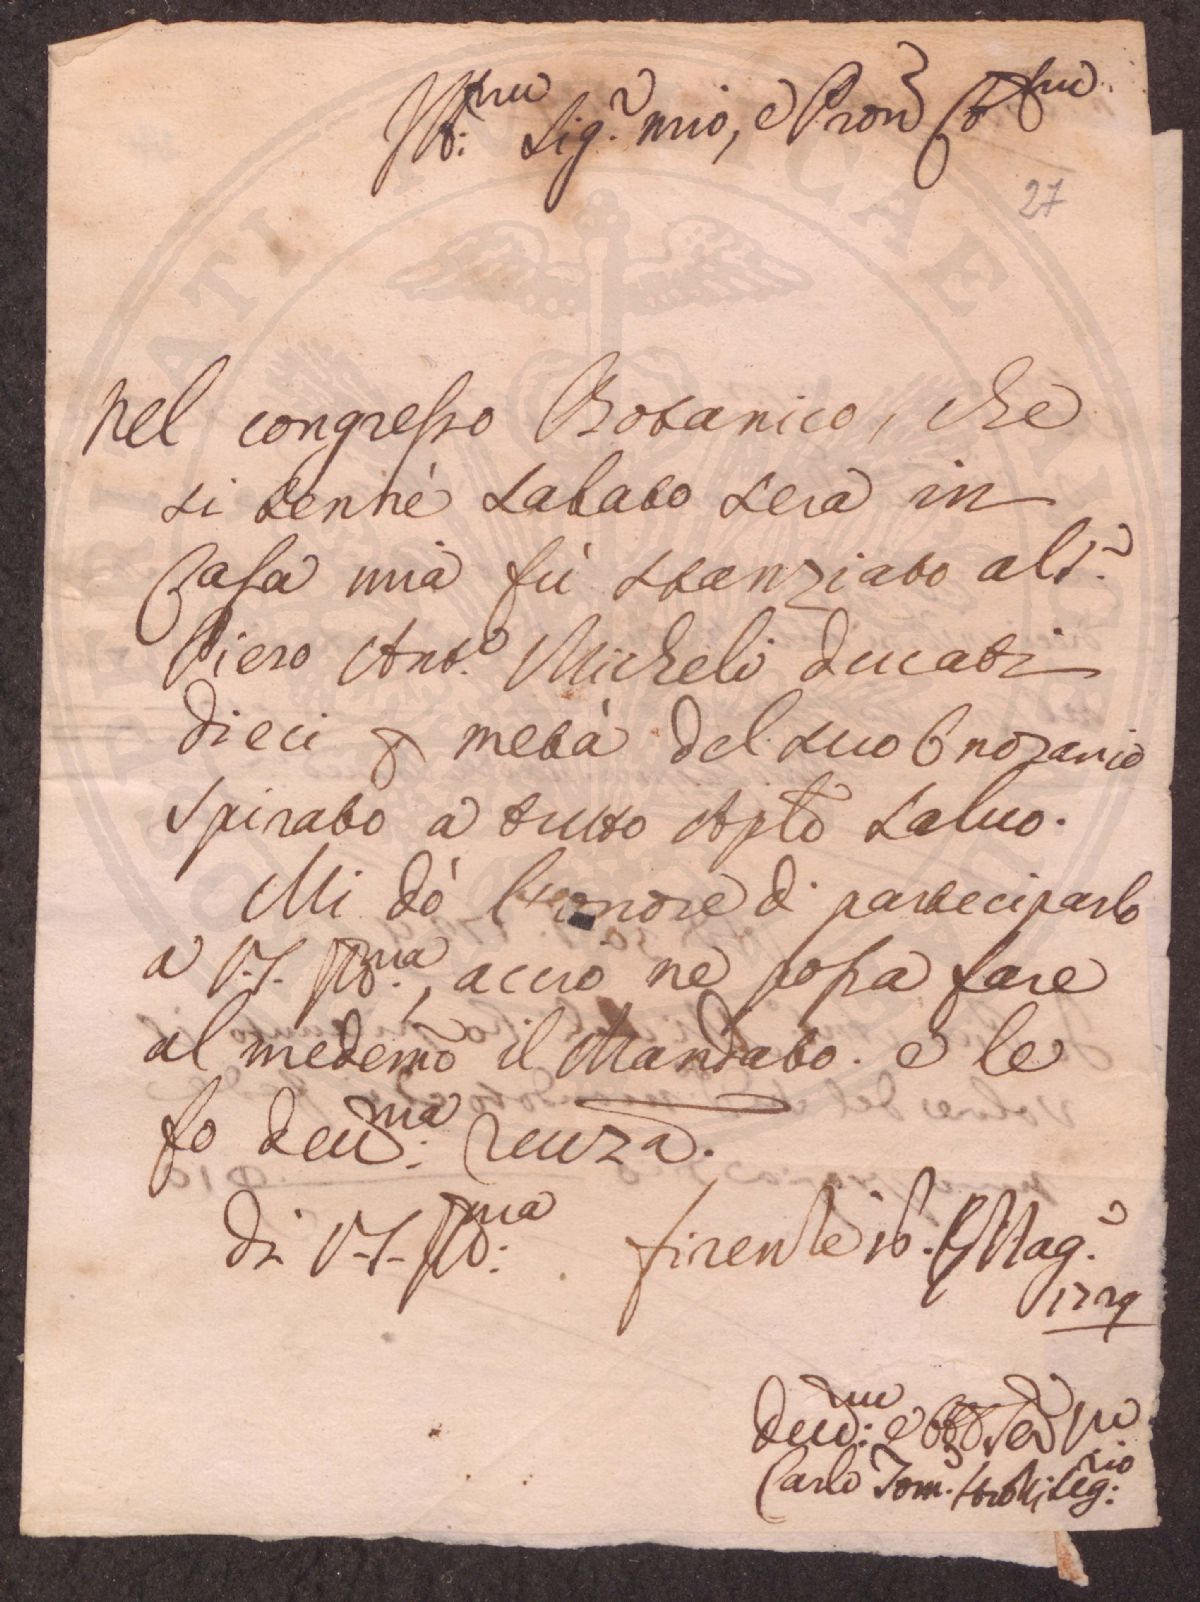 Ill:mo Sig.r mio, e Pron Col:mo
27
Nel congresso Botanico, che
si tenne Sabato Sera in
Casa mia fù stanziato al S.r
Piero Ant.o Micheli ducati
dieci p metà del suo Onorario
spirato a tutto Aple salvo.
Mi dò l'onore di parteciparlo
a V.S. Ill:ma, acciò ne possa fare
al medemo il Mandato. e le
fo dev:ma reuza.
Di V.S. Ill:ma Firenze 16. Mag.o
1729
Dev:mo e Obb Ser
Carlo Tom. Strozzi Seg:rio